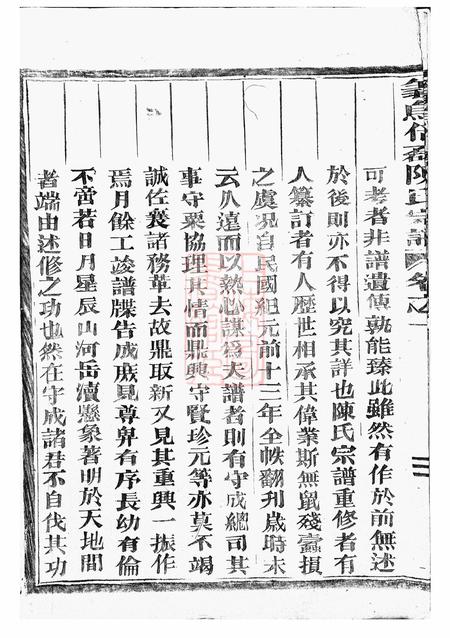 可考者非譜遺傳孰能臻此雖然有作於前無述
於後則亦不得以究其詳也陳氏宗譜重修者有
人纂訂者有人歷世相承其偉業斯無鼠殘蠹損
之虞况自民國紀元前十三年全帙翻刋歲時未
云久遠而以熱心謀爲夫譜者則有守成總司其
事守粟協理其情而鼎興守賢珍元等亦莫不竭
誠佐襄諸務華去故鼎取新又見其重興一振作
焉月餘工竣譜牒告成庶見尊昇有序長幼有倫
不啻若日月星辰山河岳瀆懸象著明於天地間
者端由述修之功也然在守成諸君不自伐其功
陳氏宗譜 卷之一